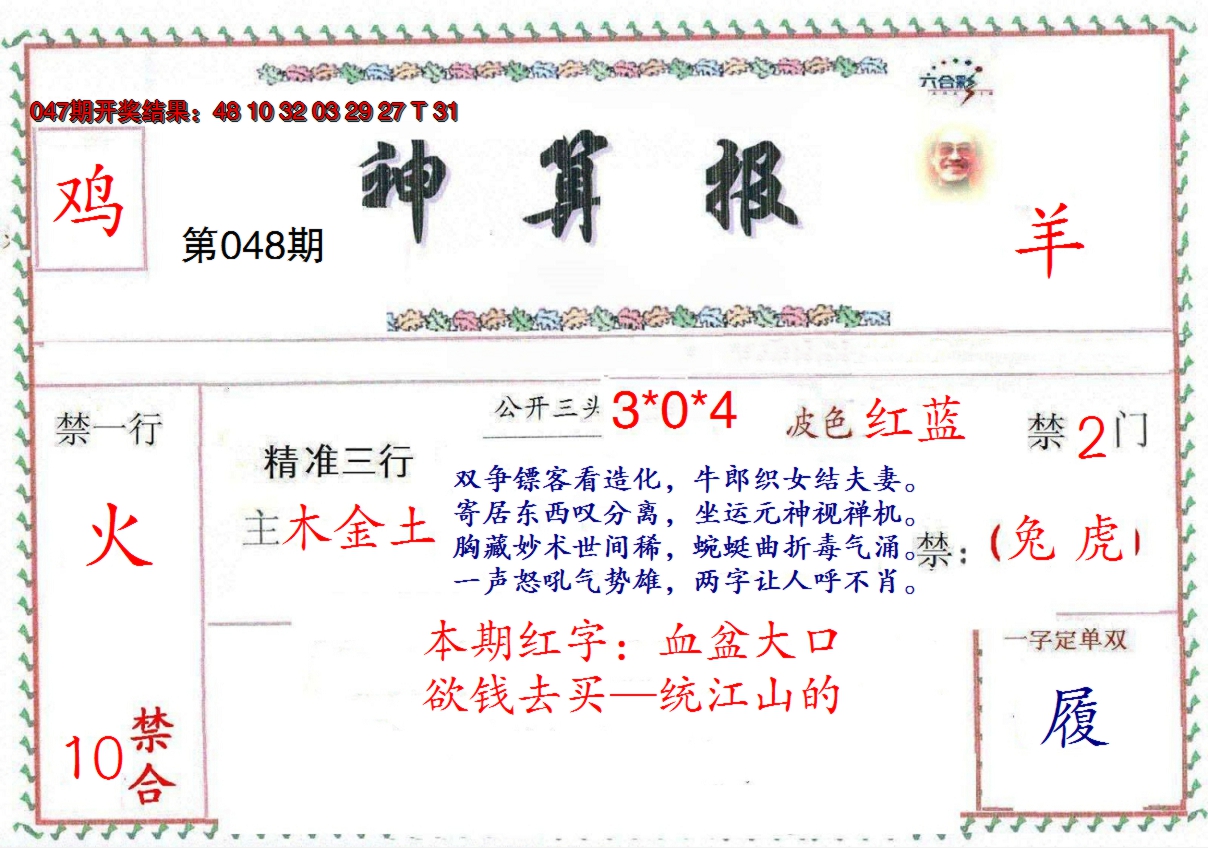 六合彩
047期开奖结果：48 10 32 03 29 27 T 31
鸡
神算报
第048期
羊
禁一行
火
10禁合
精准三行
主木金土
公开三头 3*0*4
波色 红蓝
禁2门
双争镖客看造化，牛郎织女结夫妻。
寄居东西叹分离，坐运元神视禅机。
胸藏妙术世间稀，蜿蜓曲折毒气涌。
一声怒吼气势雄，两字让人呼不肖。
禁：（兔 虎）
本期红字：血盆大口
欲钱去买—统江山的
一字定单双
履